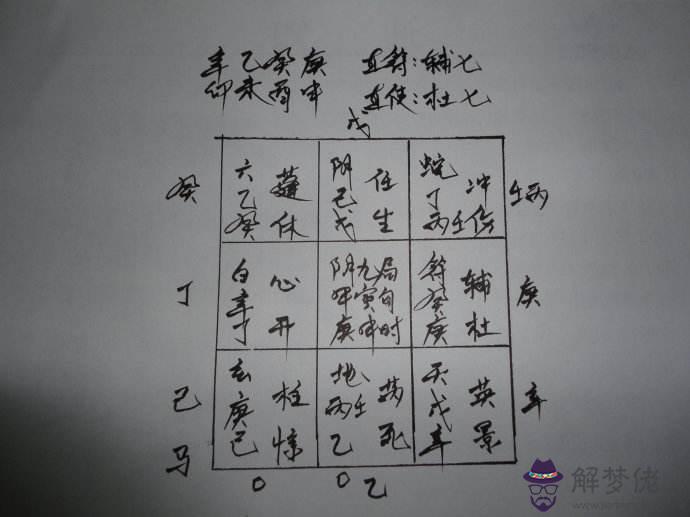 辛乙癸庚 直符:辅七
卯未酉申 直使:杜七
戊
六 蓬
乙
癸 休
阴 任
己
戊 生
蛇 冲
丁
丙壬 伤
癸
壬丙
白 心
辛
丁 开
阴九局
甲寅旬
庚申时
符 辅
癸
庚 杜
丁
庚
玄 柱
庚
己 惊
地
丙壬 芮
乙 死
天 英
戊
辛 景
己
辛
马
○ ○ 乙
解梦佬